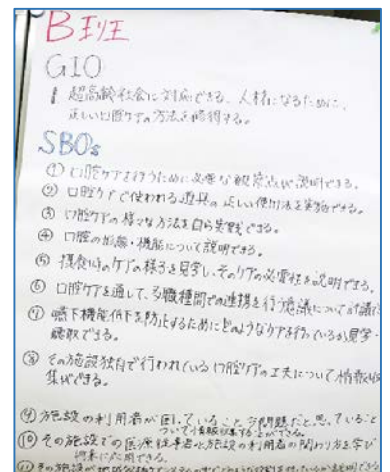 B班
GIO
超高齢社会に対応できる、人材になるために、
正しい口腔ケアの方法を修得する。
SBOs
① 口腔ケアを行うために必要な観察点が説明できる。
② 口腔ケアで使われる道具の正しい使用法を実施できる。
③ 口腔ケアの様々な方法を自ら実践できる。
④ 口腔の形態・機能について説明できる。
⑤ 摂食時のケアの様子を見学し、そのケアの必要性を説明できる。
⑥ 口腔ケアを通して、多職種間での連携を行う意議について討議で
⑦ 嚥下機能低下を防止するためにどのようなケアを行っているか見学・
聴取できる。
⑧ その施設独自で行われている口腔ケアの工夫について情報収
集できる。
⑨ 施設の利用者が困っていること、問題だと思っていること
ついて情報収集することができる。
⑩ その施設での医療従事者と施設の利用者の関わり方を学び
将来に応用できる。
⑪ その施設が地域包括ケアシステムの